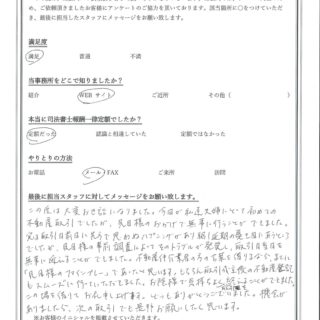 め、ご依頼頂きましたお客様にアンケートのご協力を頂いております。該当箇所に○をつけていただ
き、最後に担当したスタッフにメッセージをお願い致します。
満足度
満足 普通 不満
当事務所をどこで知りましたか？
紹介 WEB サイト ご近所 その他（ ）
本当に司法書士報酬一律定額でしたか？
定額だった 認識と相違していた 定額ではなかった
やりとりの方法
お電話 メール・FAX ご来所 訪問
最後に担当スタッフに対してメッセージをお願い致します。
この度は大変お世話になりました。今回が私達夫婦にとって初めての
不動産取引でしたが、
のおかげで無事に行うことができました。
実は取引日前日に
ですが、 の事前調査によってそのトラブルが発覚し、取引日当日を
無事に迎えることができました。不動産仲介業者の方の言葉を借りるなら、まさに
「 のファインプレー」であったと思います。もちろん取引成立後の不動産登記
もスムーズに行っていただきました。お陰様で気持ちよく
この場を借りてお礼申し上げます。どうもありがとうございました。機会が
ありましたら、次の取引でも是非お願いしたいと思います。
※お客様のイニシャルを掲載させていただきます。